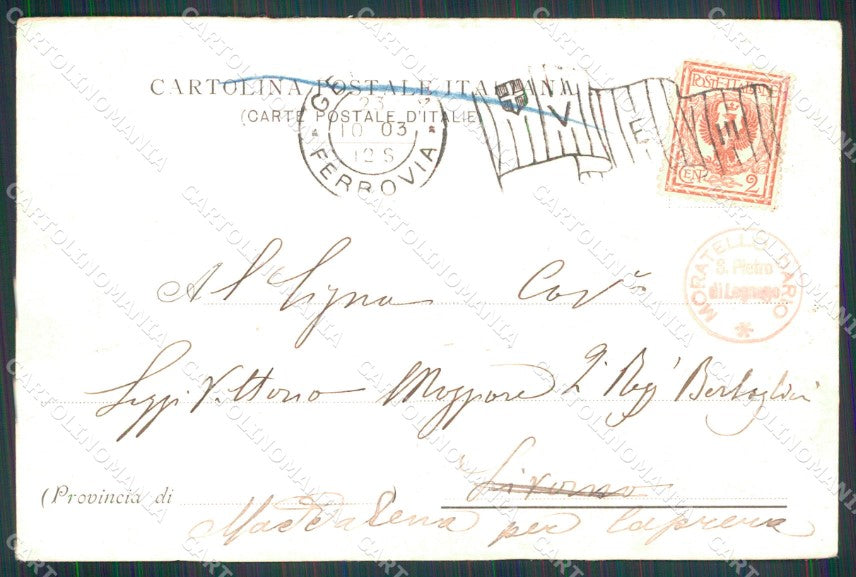 CARTOLINA POSTALE ITALIANA
(CARTE POSTALE D'ITALIE
GE
23
10 03
12 S
FERROVIA
V
E
E
POSTE ITALIANE
CENT. 2
MORATELLO DARIO
S. Pietro
di Legnago
Al Signor Cav.
Vittorio Maggiore 2° Regg Bersaglieri
Livorno
(Provincia di )
Maddalena per Caprera
CARTOLINOMANIA